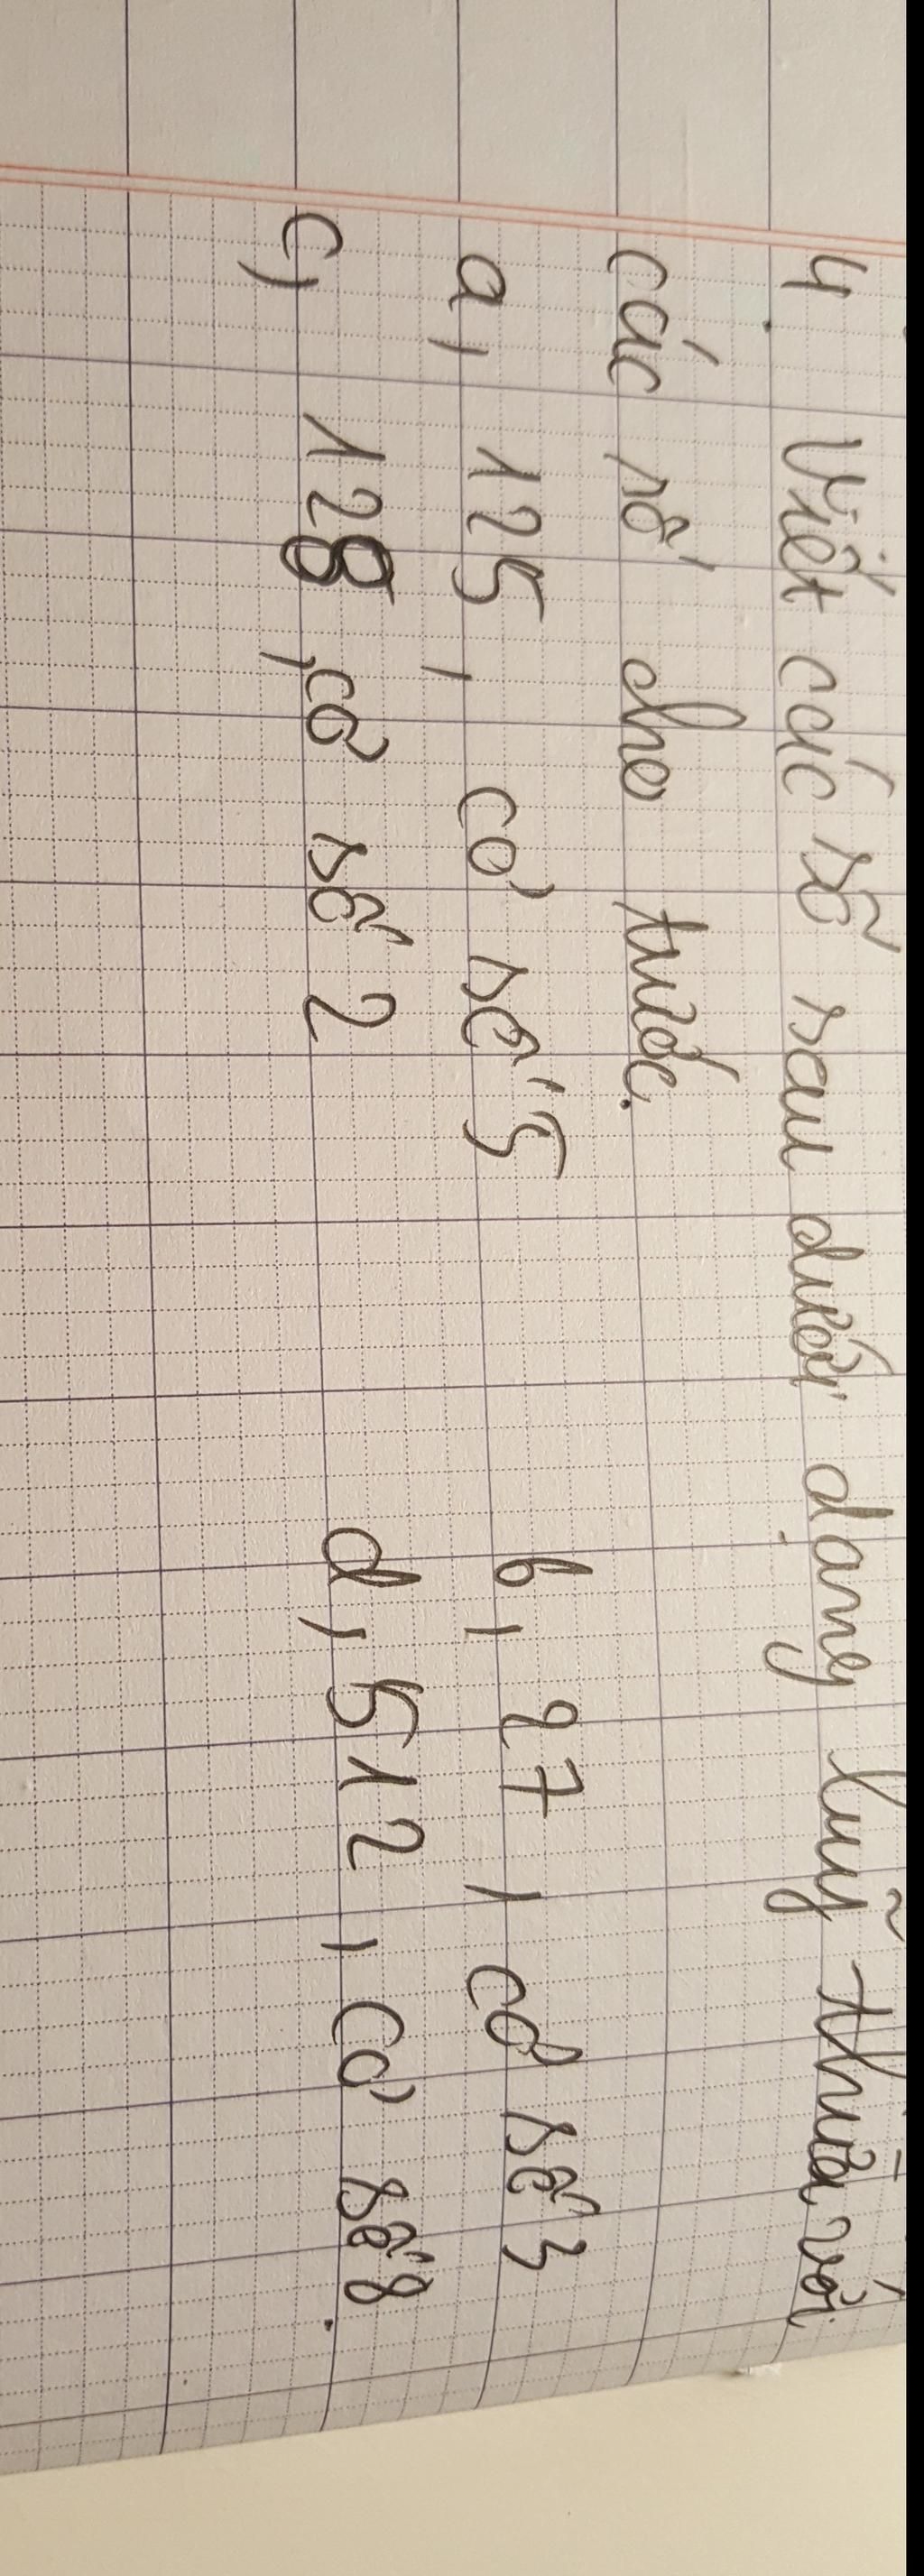 4. Viết các số sau dưới dạng luỹ thừa với
các số cho trước.
a, 125, cơ số 5 b, 27, cơ số 3
c, 128, cơ số 2 d, 512, cơ số 8.